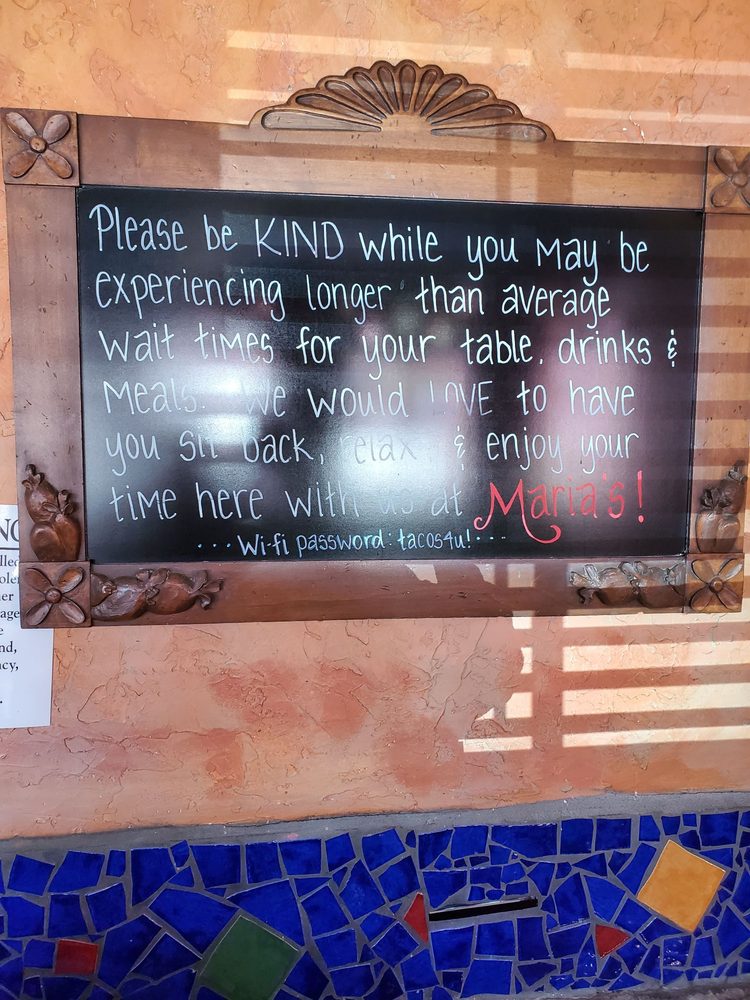 Please be KIND while you may be
experiencing longer than average
wait times for your table, drinks &
Meals. We would LOVE to have
you sit back, relax & enjoy your
time here with us at Maria's!
...Wi-fi password: tacos4u!...